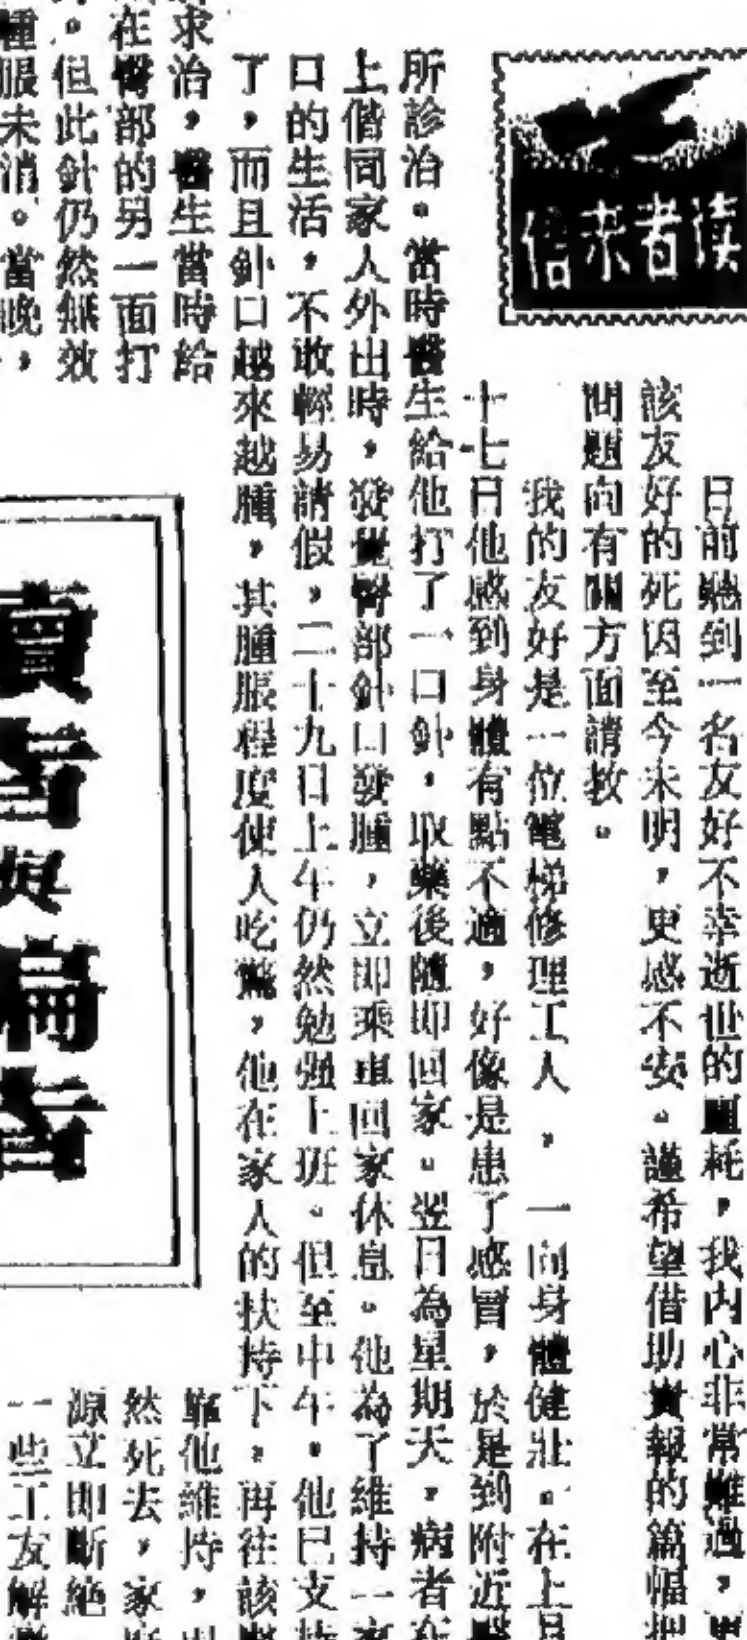 读者来信
日前聽到一名友好不幸逝世的噩耗，我内心非常難過，
該友好的死因至今未明，更感不安。謹希望借助貴報的篇幅把
問題向有關方面請教。
我的友好是一位電梯修理工人，一向身體健壯。在上月
十七日他感到身體有點不適，好像是患了感冒，於是到附近醫
所診治。當時醫生給他打了一口針，取藥後隨即回家。翌日為星期天，病者在
上偕同家人外出時，發覺臀部針口發腫，立即乘車回家休息。他為了維持一家
口的生活，不敢輕易請假，二十九日上午仍然勉强上班。但至中午，他已支持
了，而且針口越來越腫，其腫脹程度使人吃驚，他在家人的扶持下，再往該
求治，醫生當時給
在臀部的另一面打
。但此針仍然無效
腫脹未消。當晚，
與
靠他維持，
然死去，家
源立即斷絶
一些工友解